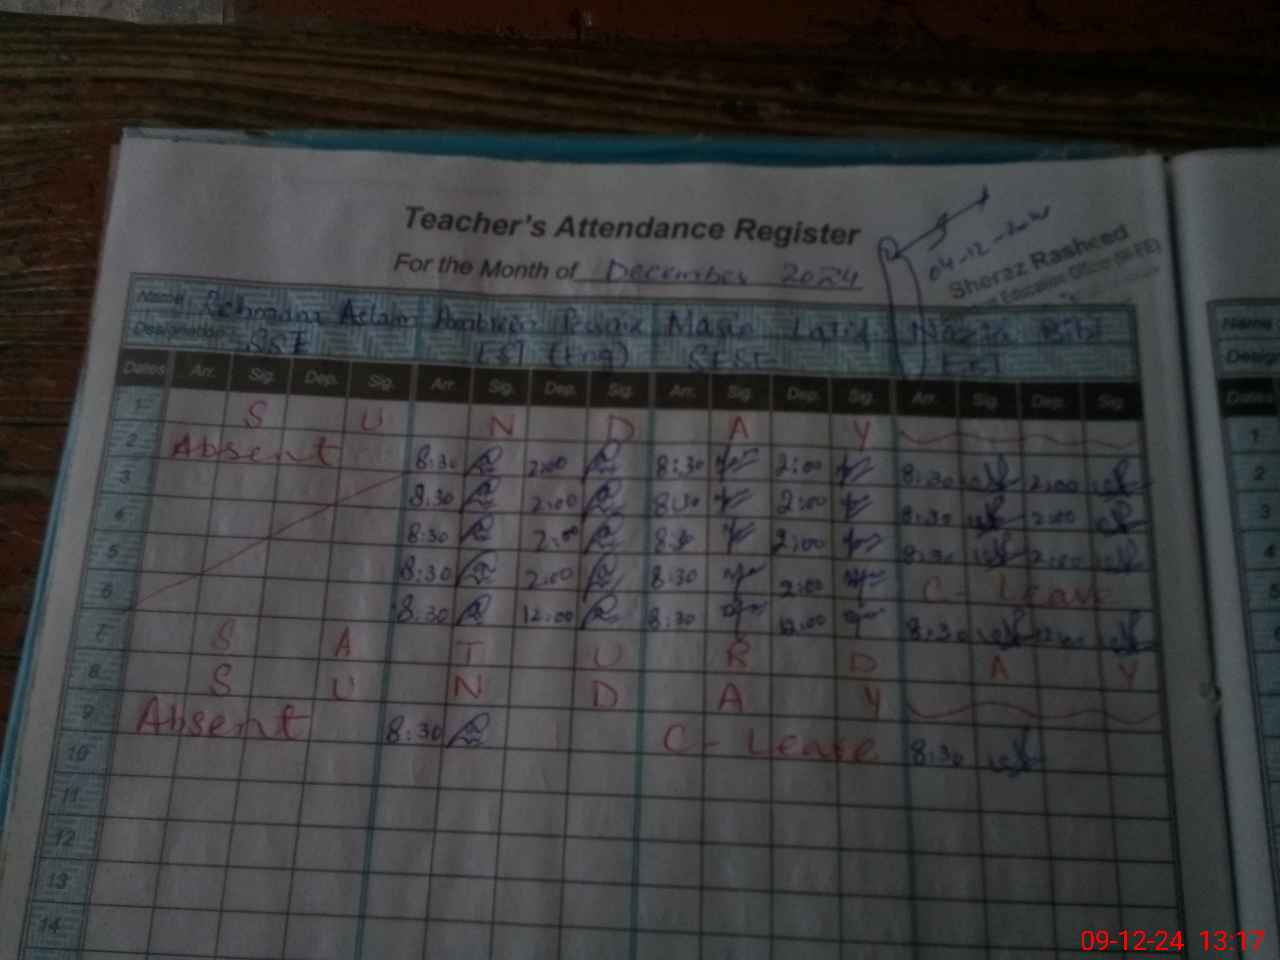 Teacher's Attendance Register
For the Month of December 2024
04-12-2024
Sheraz Rasheed
Education Officer (M-EE)
Name Rehmana Aslam Ambreen Maria Latif Nazia Bibi
Designation SST EST (Eng) SESE EST
Dates Arr. Sig. Dep. Sig. Arr. Sig. Dep. Sig. Arr. Sig. Dep. Sig. Arr. Sig. Dep. Sig.
1 S U N D A Y
2 Absent 8:30 2:00 8:30 2:00 8:30 2:00
3 8:30 2:00 8:30 2:00 8:30 2:00
4 8:30 2:00 8:30 2:00 8:30 2:00
5 8:30 2:00 8:30 2:00 C- Leave
6 8:30 12:00 8:30 12:00 8:30 12:00
7 S A T U R D A Y
8 S U N D A Y
9 Absent 8:30 C- Leave 8:30
10
11
12
13
14
Name
Design
Dates
1
2
3
4
5
09-12-24 13:17